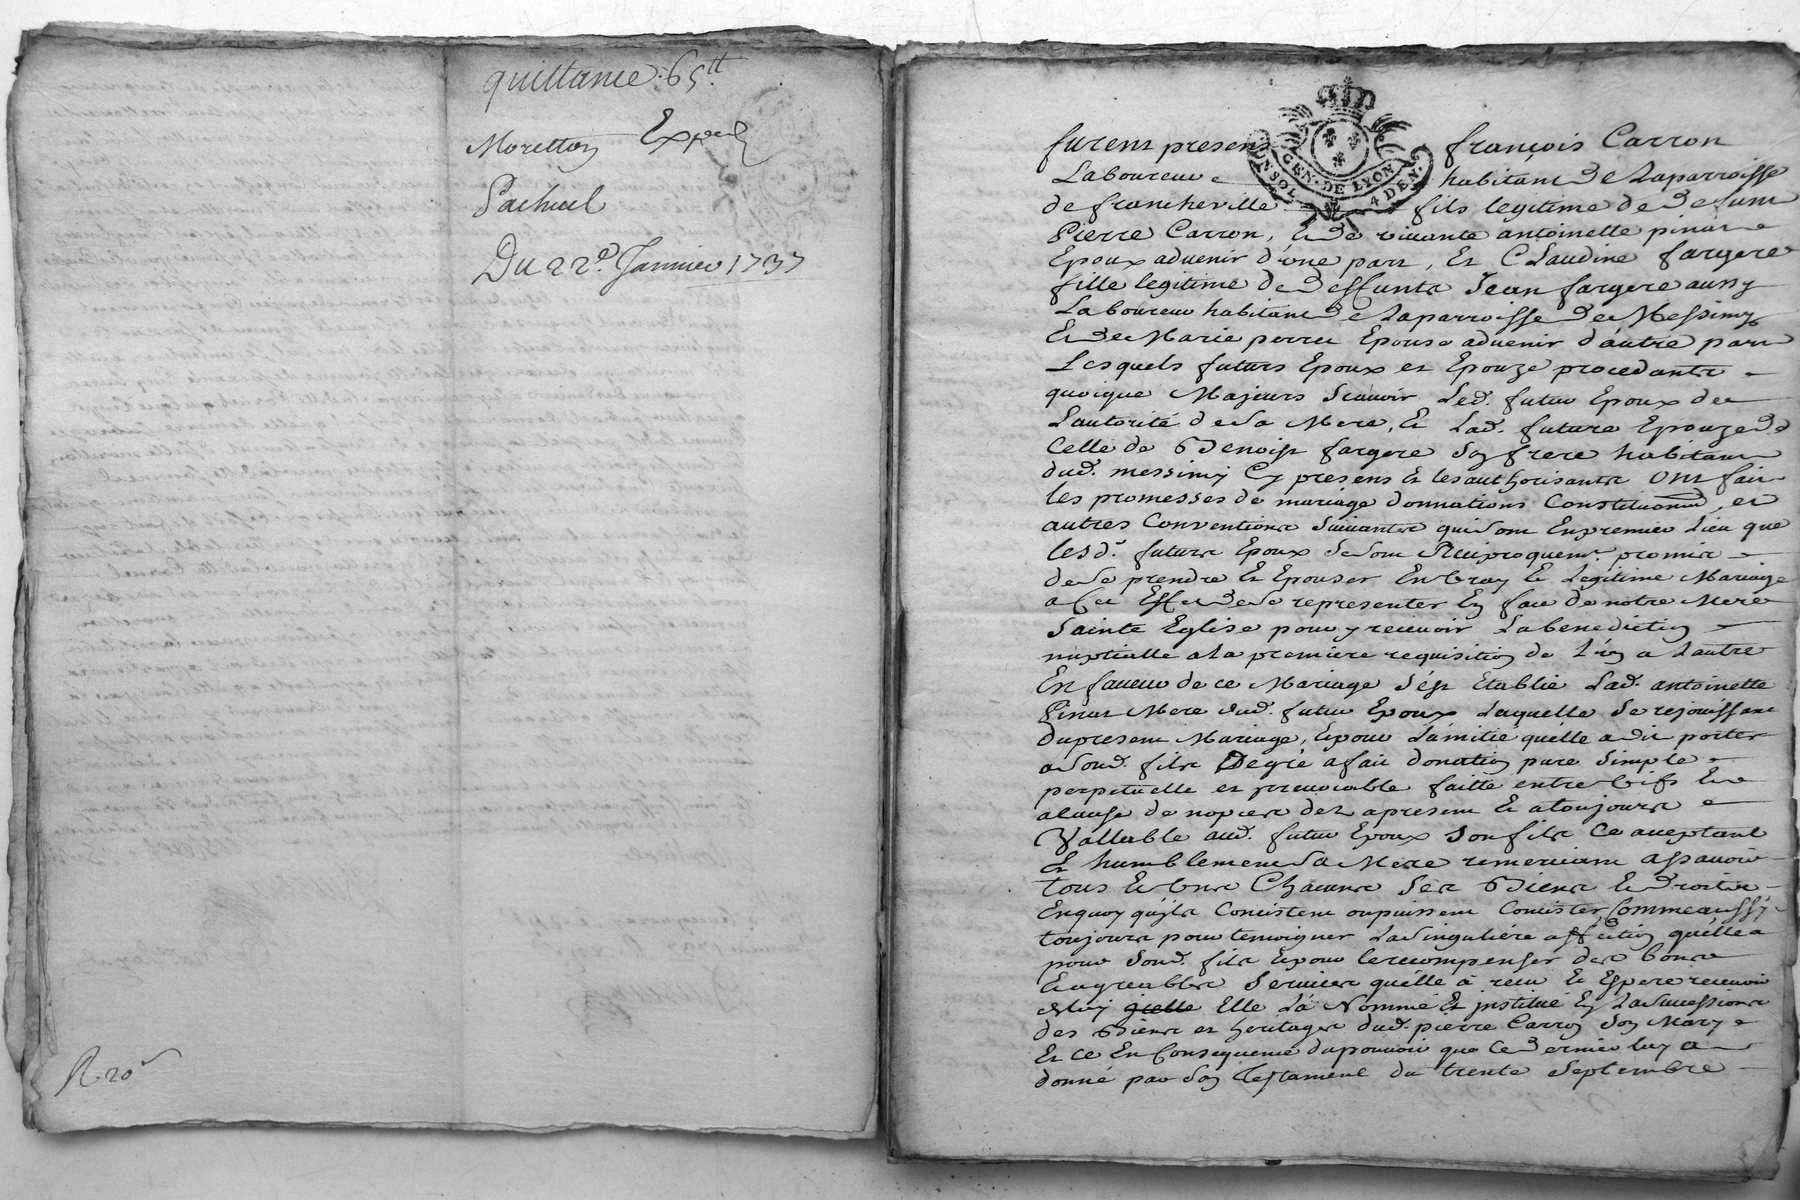 quittance: 65ᵗᵗ
Moretton Exped
Pachuel
Du 22ᵉ. Janvier 1737
R 20ˢ
GEN. DE LYON
4 DEN.
furent presens françois Carron
Laboureur habitant de Laparroisse
de francheville fils legitime de defunt
Pierre Carron, et de vivante antoinette pinat
Epoux advenir d'une part, Et Claudine fargere
fille legitime de deffunt Jean fargere aussy
Laboureur habitant de Laparroisse de Messimy
Et de Marie perret Epouse advenir d'autre part
Lesquels futurs Epoux et Epouze procedants
quoique Majeurs scavoir Led. futur Epoux de
Lautorité de sa Mere, et Lad. future Epouze de
Celle de Benoist fargere son frere habitant
dud. messimy Cy presens et les authorisants Ont fait
les promesses de mariage donnations Constitutions, et
autres Conventions suivantes qui sont En premier Lieu que
lesd. futurs Epoux se sont Reciproquemt. promis
de se prendre Et Epouser En Vray et Legitime Mariage
a Cet Effet de se representer En face de notre Mere
Sainte Eglise pour y recevoir La benediction
nuptialle a la premiere requisition de L'un a Lautre
En faveur de ce Mariage s'est Etablie Lad. antoinette
Pinat Mere dud. futur Epoux Laquelle se rejouissant
du present Mariage, Et pour L'amitié qu'elle a dit porter
a Sond. fils De gré a fait donation pure simple
perpetuelle et irrevocable faitte entre vifs Et
a cause de nopces dez apresent Et a toujours
Vallable aud. futur Epoux son fils Ce acceptant
Et humblement sa Mere remerciant assavoir
tous Et Uns Chacuns ses Biens et droits
En quoy qu'ils Concistent ou puissent Concister, Comme aussy
toujours pour temoigner La singuliére affection qu'elle a
pour Sond. fils Et pour le recompenser des bons
Et agreables services qu'elle à receu et Espere recevoir
de luy Elle L'a Nommé Et institué En La succession
des Biens et heritages dud. pierre Carron son Mary
Et ce En Consequence du pouvoir que Ce dernier luy a
donné par son Testament du trente Septembre